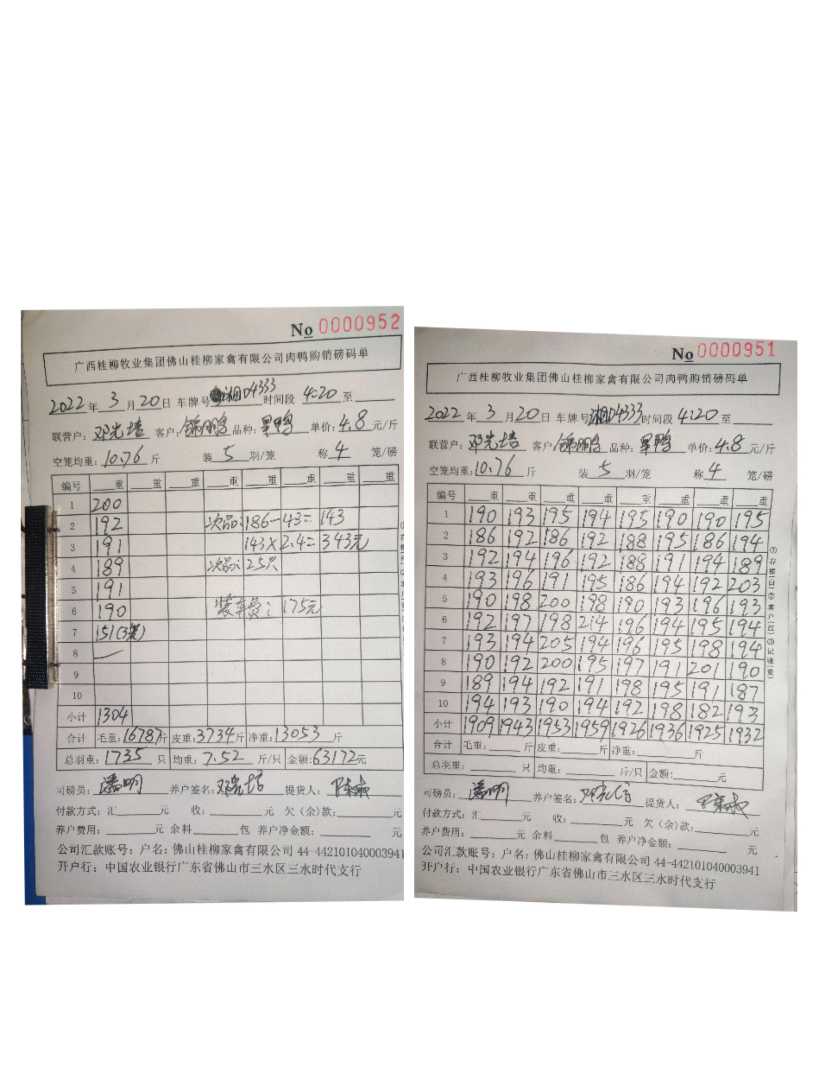 No 0000952
广西桂柳牧业集团佛山桂柳家禽有限公司肉鸭购销磅码单
2022年 3月20日 车牌号 湘D4333 时间段 4:20 至
联营户: 邓光培 客户: 锦鹏鸽 品种: 单鸭 单价: 4.8 元/斤
空笼均重: 10.76 斤 装 5 羽/笼 称 4 笼/磅
编号 重 重 重 重 重 重 重 重
1 200
2 192 次品:186-43=143
3 191 143×2.4=343元
4 189 次品:25只
5 191
6 190 装车费:175元
7 151(3笼)
8 —
9
10
小计 1304
合计 毛重: 16787斤 皮重: 3734斤 净重: 13053 斤
总羽重: 1735 只 均重: 7.52 斤/只 金额: 63172元
司磅员: 潘明 养户签名: 邓光培 提货人:
付款方式: 汇 元 收: 元 欠(余)款: 元
养户费用: 元 余料 包 养户净金额: 元
公司汇款账号: 户名: 佛山桂柳家禽有限公司 44-442101040003941
开户行: 中国农业银行广东省佛山市三水区三水时代支行
No 0000951
广西桂柳牧业集团佛山桂柳家禽有限公司肉鸭购销磅码单
2022年 3月20日 车牌号 湘D4333 时间段 4:20 至
联营户: 邓光培 客户: 锦鹏鸽 品种: 单鸭 单价: 4.8 元/斤
空笼均重: 10.76 斤 装 5 羽/笼 称 4 笼/磅
编号 重 重 重 重 重 重 重 重
1 190 193 195 194 195 190 190 195
2 186 192 186 192 188 195 186 194
3 192 194 196 192 188 191 194 189
4 193 196 191 195 186 194 192 203
5 190 198 200 198 190 193 196 193
6 192 197 198 214 196 194 195 194
7 193 194 205 194 196 195 198 194
8 190 192 200 195 197 191 201 190
9 189 194 192 191 198 195 191 187
10 194 193 190 194 192 198 182 193
小计 1909 1943 1953 1959 1926 1936 1925 1932
合计 毛重: 斤 皮重: 斤 净重: 斤
总羽重: 只 均重: 斤/只 金额: 元
司磅员: 潘明 养户签名: 邓光培 提货人:
付款方式: 汇 元 收: 元 欠(余)款: 元
养户费用: 元 余料 包 养户净金额: 元
公司汇款账号: 户名: 佛山桂柳家禽有限公司 44-442101040003941
开户行: 中国农业银行广东省佛山市三水区三水时代支行